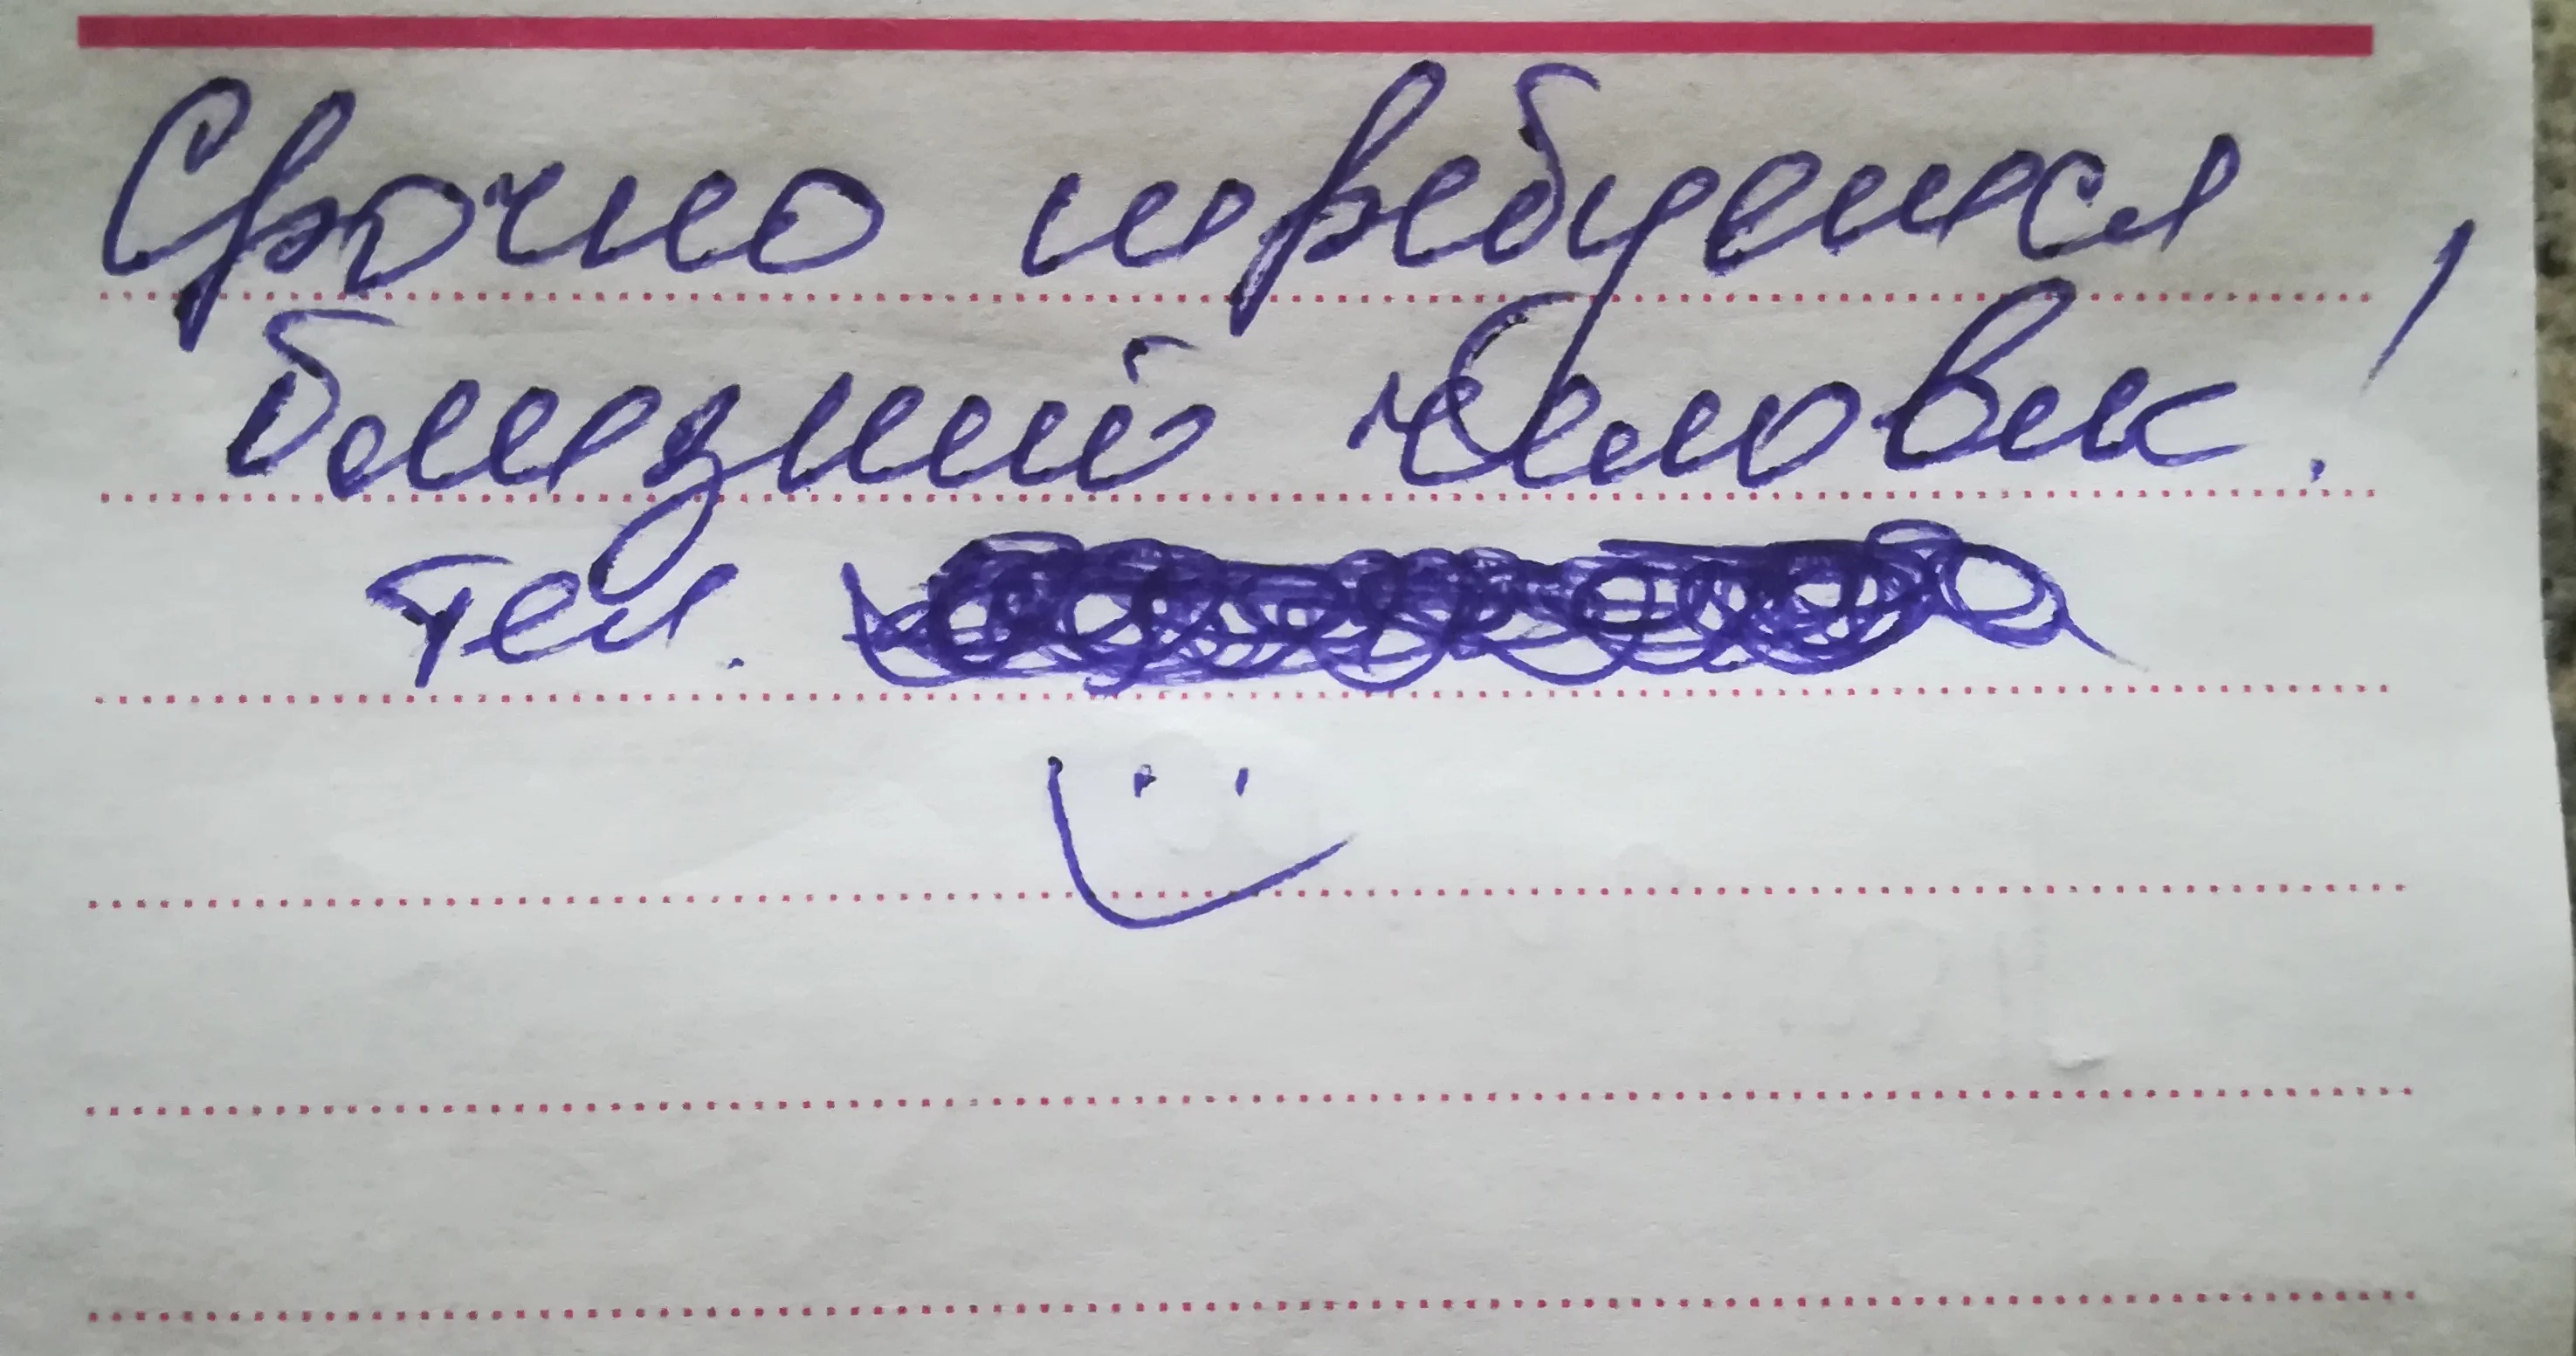 Срочно требуется
близкий человек!
тел.